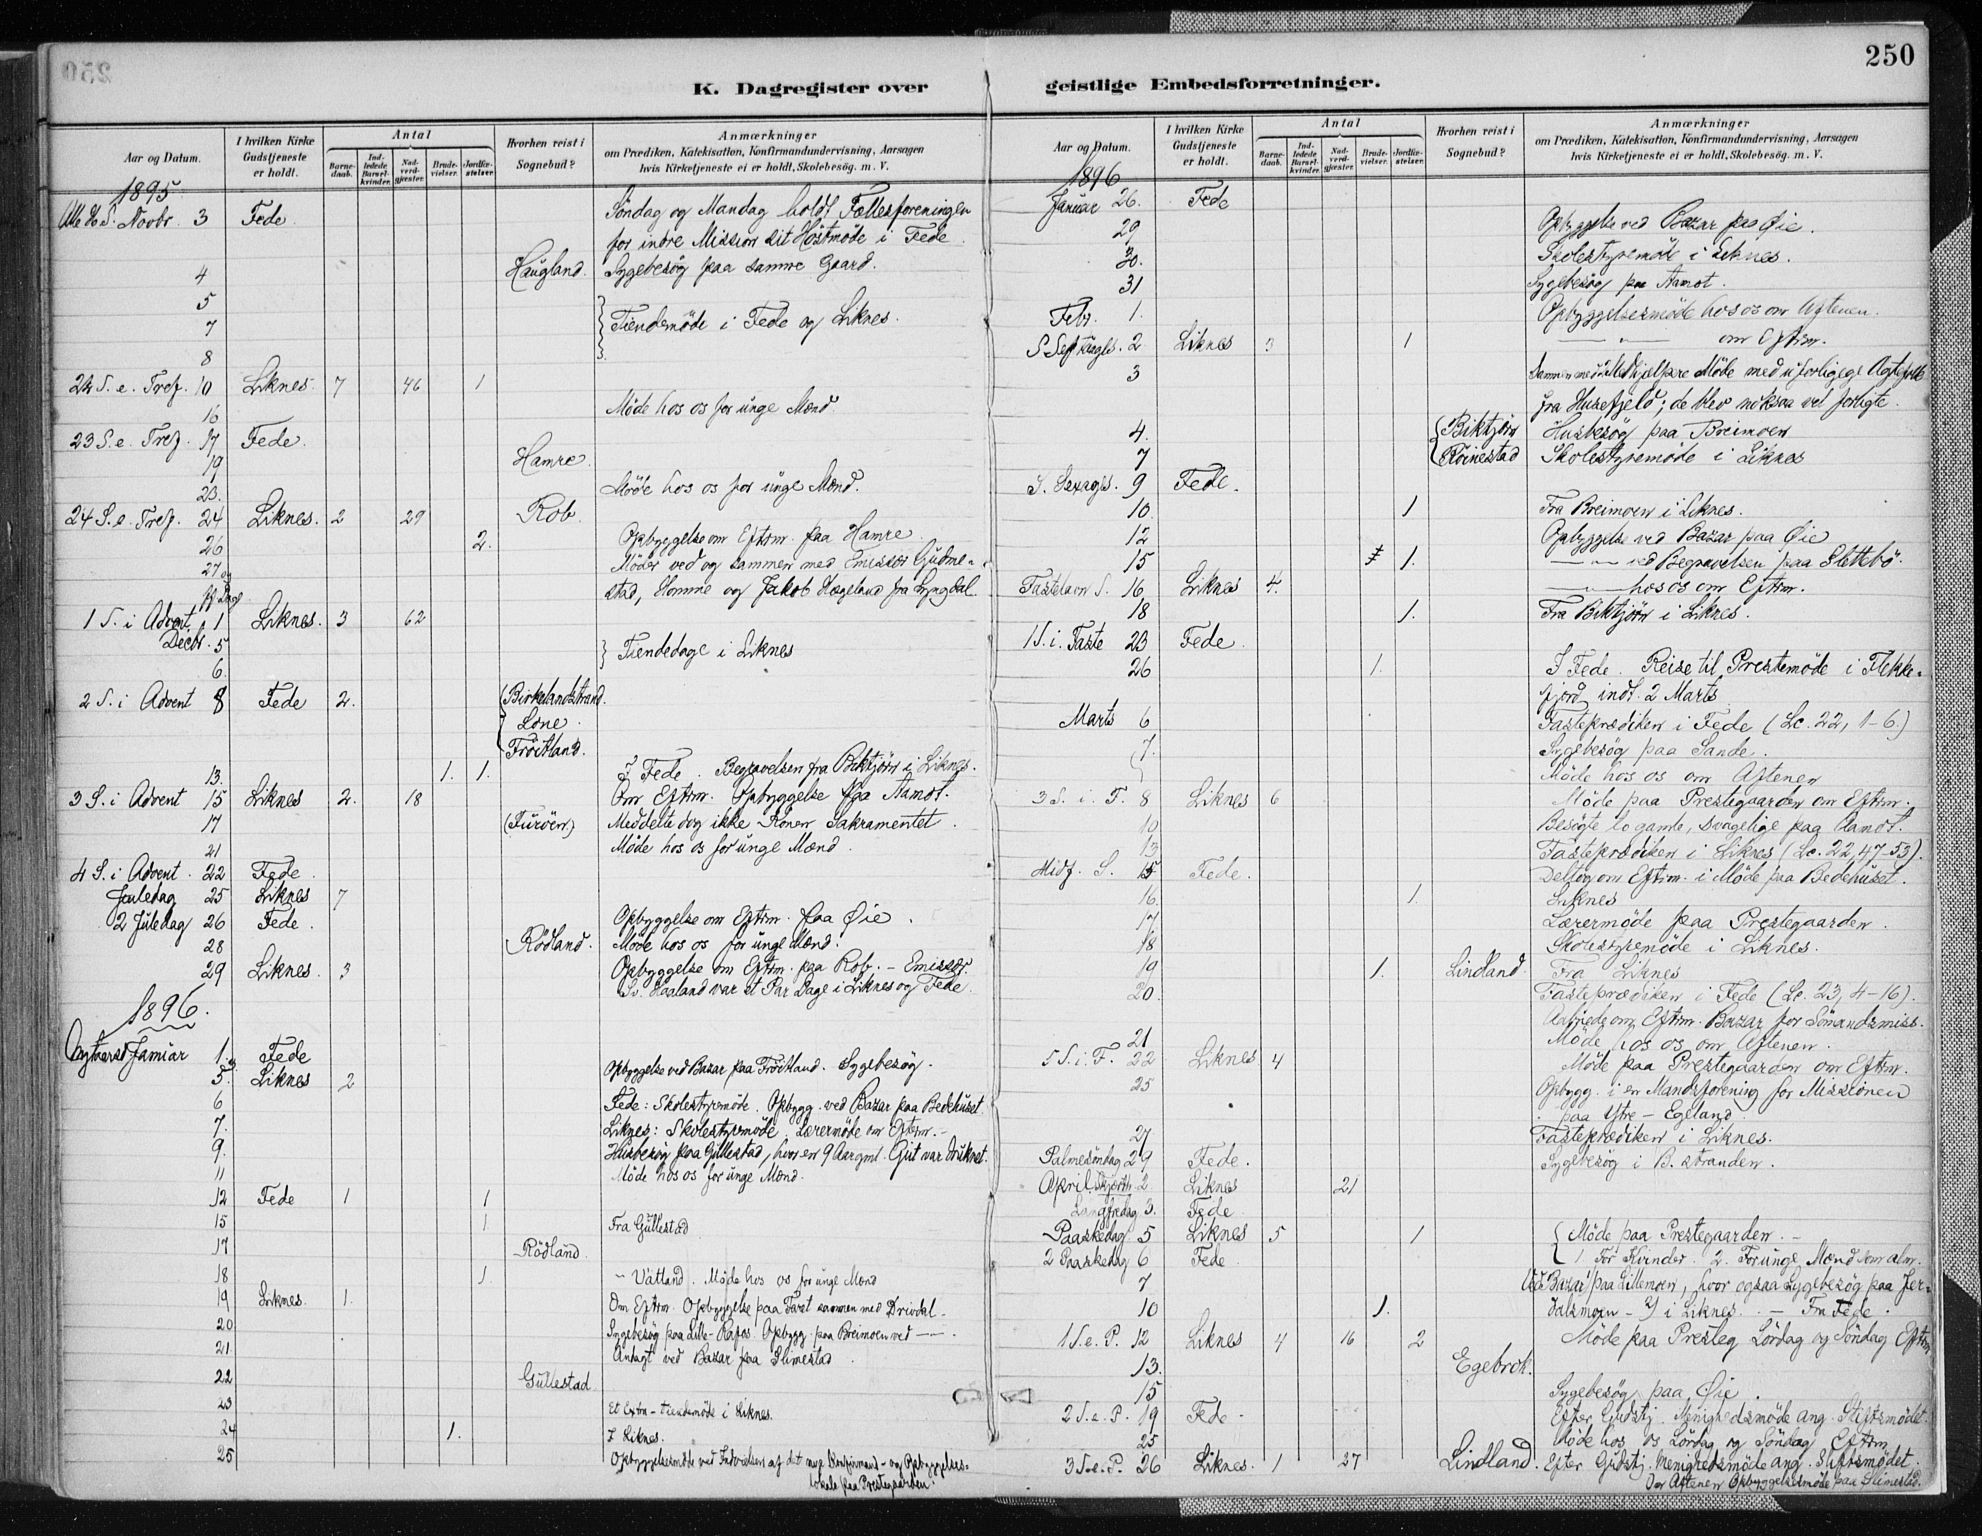 250
K. Dagregister over geistlige Embedsforretninger.
Aar og Datum.
I hvilken Kirke Gudstjeneste er holdt.
Antal
Barne-daab.
Ind-ledede Barsel-kvinder.
Nad-verd-gjæster.
Brude-vielser.
Jordfæ-stelser.
Hvorhen reist i Sognebud?
Anmærkninger
om Prædiken, Katekisation, Konfirmandundervisning, Aarsagen
hvis Kirketjeneste ei er holdt, Skolebesög. m. V.
1895
Alle H. S. Novbr. 3 Fede Söndag og Mandag holdt Fællesforeningen
for indre Mission sit Höstmöde i Fede.
4 Haugland. Sygebesög paa samme Gaard.
5
7 Tiendemöde i Fede og Liknes.
8
22 S. e. Tref. 10 Liknes. 7 46 1
16 Möde hos os for unge Mænd.
23 S. e. Tref. 17 Fede.
19 Hamre.
23. Möde hos os for unge Mænd.
24 S. e. Tref. 24 Liknes. 2 29 Rob.
26 2. Opbyggelse om Eftrm. paa Hamre.
27 og Möder ved og sammen med Emissær Gudme-
stad, Homme og Jakob Hægeland fra Lyngdal.
1 S. i Advent, 1 Liknes. 3 62
Decbr. 5 Tiendedage i Liknes
6.
2 S. i Advent 8 Fede 2. Birkelandstrand.
Lone.
Fröitland.
13. 1. 1. I Fede. Begravelsen fra Biktjörn i Liknes.
3 S. i Advent 15 Liknes 2. 18 Om Eftrm. Opbyggelse paa Aamot.
17 (Furöen) Meddelte dog ikke Konen Sakramentet.
21 Möde hos os for unge Mænd.
4 S. i Advent. 22 Fede.
Juledag 25 Liknes 7
2 Juledag 26 Fede. Opbyggelse om Eftrm. paa Öie.
28 Rödland. Möde hos os for unge Mænd.
29 Liknes. 3 Opbyggelse om Eftrm. paa Rob. – Emissær
Sv. Haaland var et Par Dage i Liknes og Fede.
1896.
Nytaarsd. Januar 1. Fede
5. Liknes 2 Opbyggelse ved Bazar paa Fröitland. Sygebesög.
6 Fede: Skolestyremöde. Opbygg. ved Bazar paa Bedehuset.
7. Liknes: Skolestyremöde. Lærermöde om Eftrm. –
9. Husbesög paa Gullestad, hvor en 9 Aar gml. Gut var druknet.
11 Möde hos os for unge Mænd.
12 Fede 1 1
15 1 Fra Gullestad
17 Rödland.
18 1. – Vatland. Möde hos os for unge Mænd
19 Liknes. 1. Om Eftrm. Opbyggelse paa Faret sammen med Drivdal.
20 Sygebesög paa Lille-Rafos. Opbygg. paa Breimoen ved —
21. Andagt ved Bazar paa Slimestad.
22 Gullestad.
23 Et Extra-tiendemöde i Liknes.
24 1. I Liknes.
25 Opbyggelsesmöde ved Indvielsen af det nye Konfirmand- og Opbyggelses-
lokale paa Prestegaarden.
Aar og Datum.
I hvilken Kirke Gudstjeneste er holdt.
Antal
Barne-daab.
Ind-ledede Barsel-kvinder.
Nad-verd-gjæster.
Brude-vielser.
Jordfæ-stelser.
Hvorhen reist i Sognebud?
Anmærkninger
om Prædiken, Katekisation, Konfirmandundervisning, Aarsagen
hvis Kirketjeneste ei er holdt, Skolebesög. m. V.
1896
Januar 26. Fede
29 Opbyggelse ved Bazar paa Öie.
30. Skolestyremöde i Liknes.
31 Sygebesög paa Aamot.
Febr. 1. Opbyggelsesmöde hos os om Aftenen.
S. Septuages. 2 Liknes 3 1 — om Eftrm.
3 Sammen med Medhjælpere Möde med uforligede Ægtefolk
fra Husefjeld; de blev noksaa vel forligte.
4. Biktjörn Husbesög paa Breimoen
7 Röinestad Skolestyremöde i Liknes
S. Sexages. 9 Fede.
10 1 Fra Breimoen i Liknes.
12 Opbyggelse ved Bazar paa Öie
15 1. — ved Begravelsen paa Slettebö.
Fastelavn S. 16 Liknes 4. — hos os om Eftrm.
18 1. Fra Biktjörn i Liknes.
1 S. i. Faste 23 Fede.
26 1. I Fede. Reise til Prestemöde i Flekke-
fjord indt. 2 Marts
Marts 6 Fasteprædiken i Fede (Lc. 22, 1–6.)
7. Sygebesög paa Sande.
Möde hos os om Aftenen
3 S. i. F. 8 Liknes 6 Möde paa Prestegaarden om Eftrm.
10 Besögte to gamle, svagelige paa Aamot.
13 Fasteprædiken i Liknes (Lc. 22, 47–53).
Midf. S. 15 Fede. Deltog om Eftrm. i Möde paa Bedehuset.
16. 1. Liknes
17 Lærermöde paa Prestegaarden.
18 Skolestyremöde i Liknes.
19 1. Lindland. Fra Liknes
20. Fasteprædiken i Fede (Lc. 23, 4–16).
Aabnede om Eftrm. Bazar for Sömandsmiss.
21 Möde hos os om Aftenen.
5 S. i. F. 22 Liknes 4 Möde paa Prestegaarden om Eftrm.
25 Opbygg. i en Mandsforening for Missionen
paa Ytre-Egeland.
27 Fasteprædiken i Liknes.
Palmesöndag 29 Fede. Sygebesög i B. stranden.
April. Skjærth. 2 Liknes 21
Langfredag 3. Fede.
Paaskedag 5 Liknes 5 1 Möde paa Prestegaarden. –
2 Paaskedag 6 Fede. 1. For Kvinder. 2. For unge Mænd som alm.
7 Ved Bazar paa Lillemoen, hvor ogsaa Sygebesög paa Jer-
10 1. dalsmoen – i Liknes. – Fra Fede.
1 S. e. P. 12 Liknes 4 16 2 Möde paa Presteg. Lördag og Söndag Eftrm.
13. Egebrok.
15 Sygebesög paa Öie.
2 S. e. P. 19 Fede. Efter Gudstj. Menighedsmöde ang. Stiftsmödet.
25 Möde hos os Lördag og Söndag Eftrm.
3 S. e. P. 26 Liknes. 1 27 Lindland. Efter Gudstj. Menighedsmöde ang. Stiftsmödet.
Om Aftenen Opbyggelsesmöde paa Slimestad.